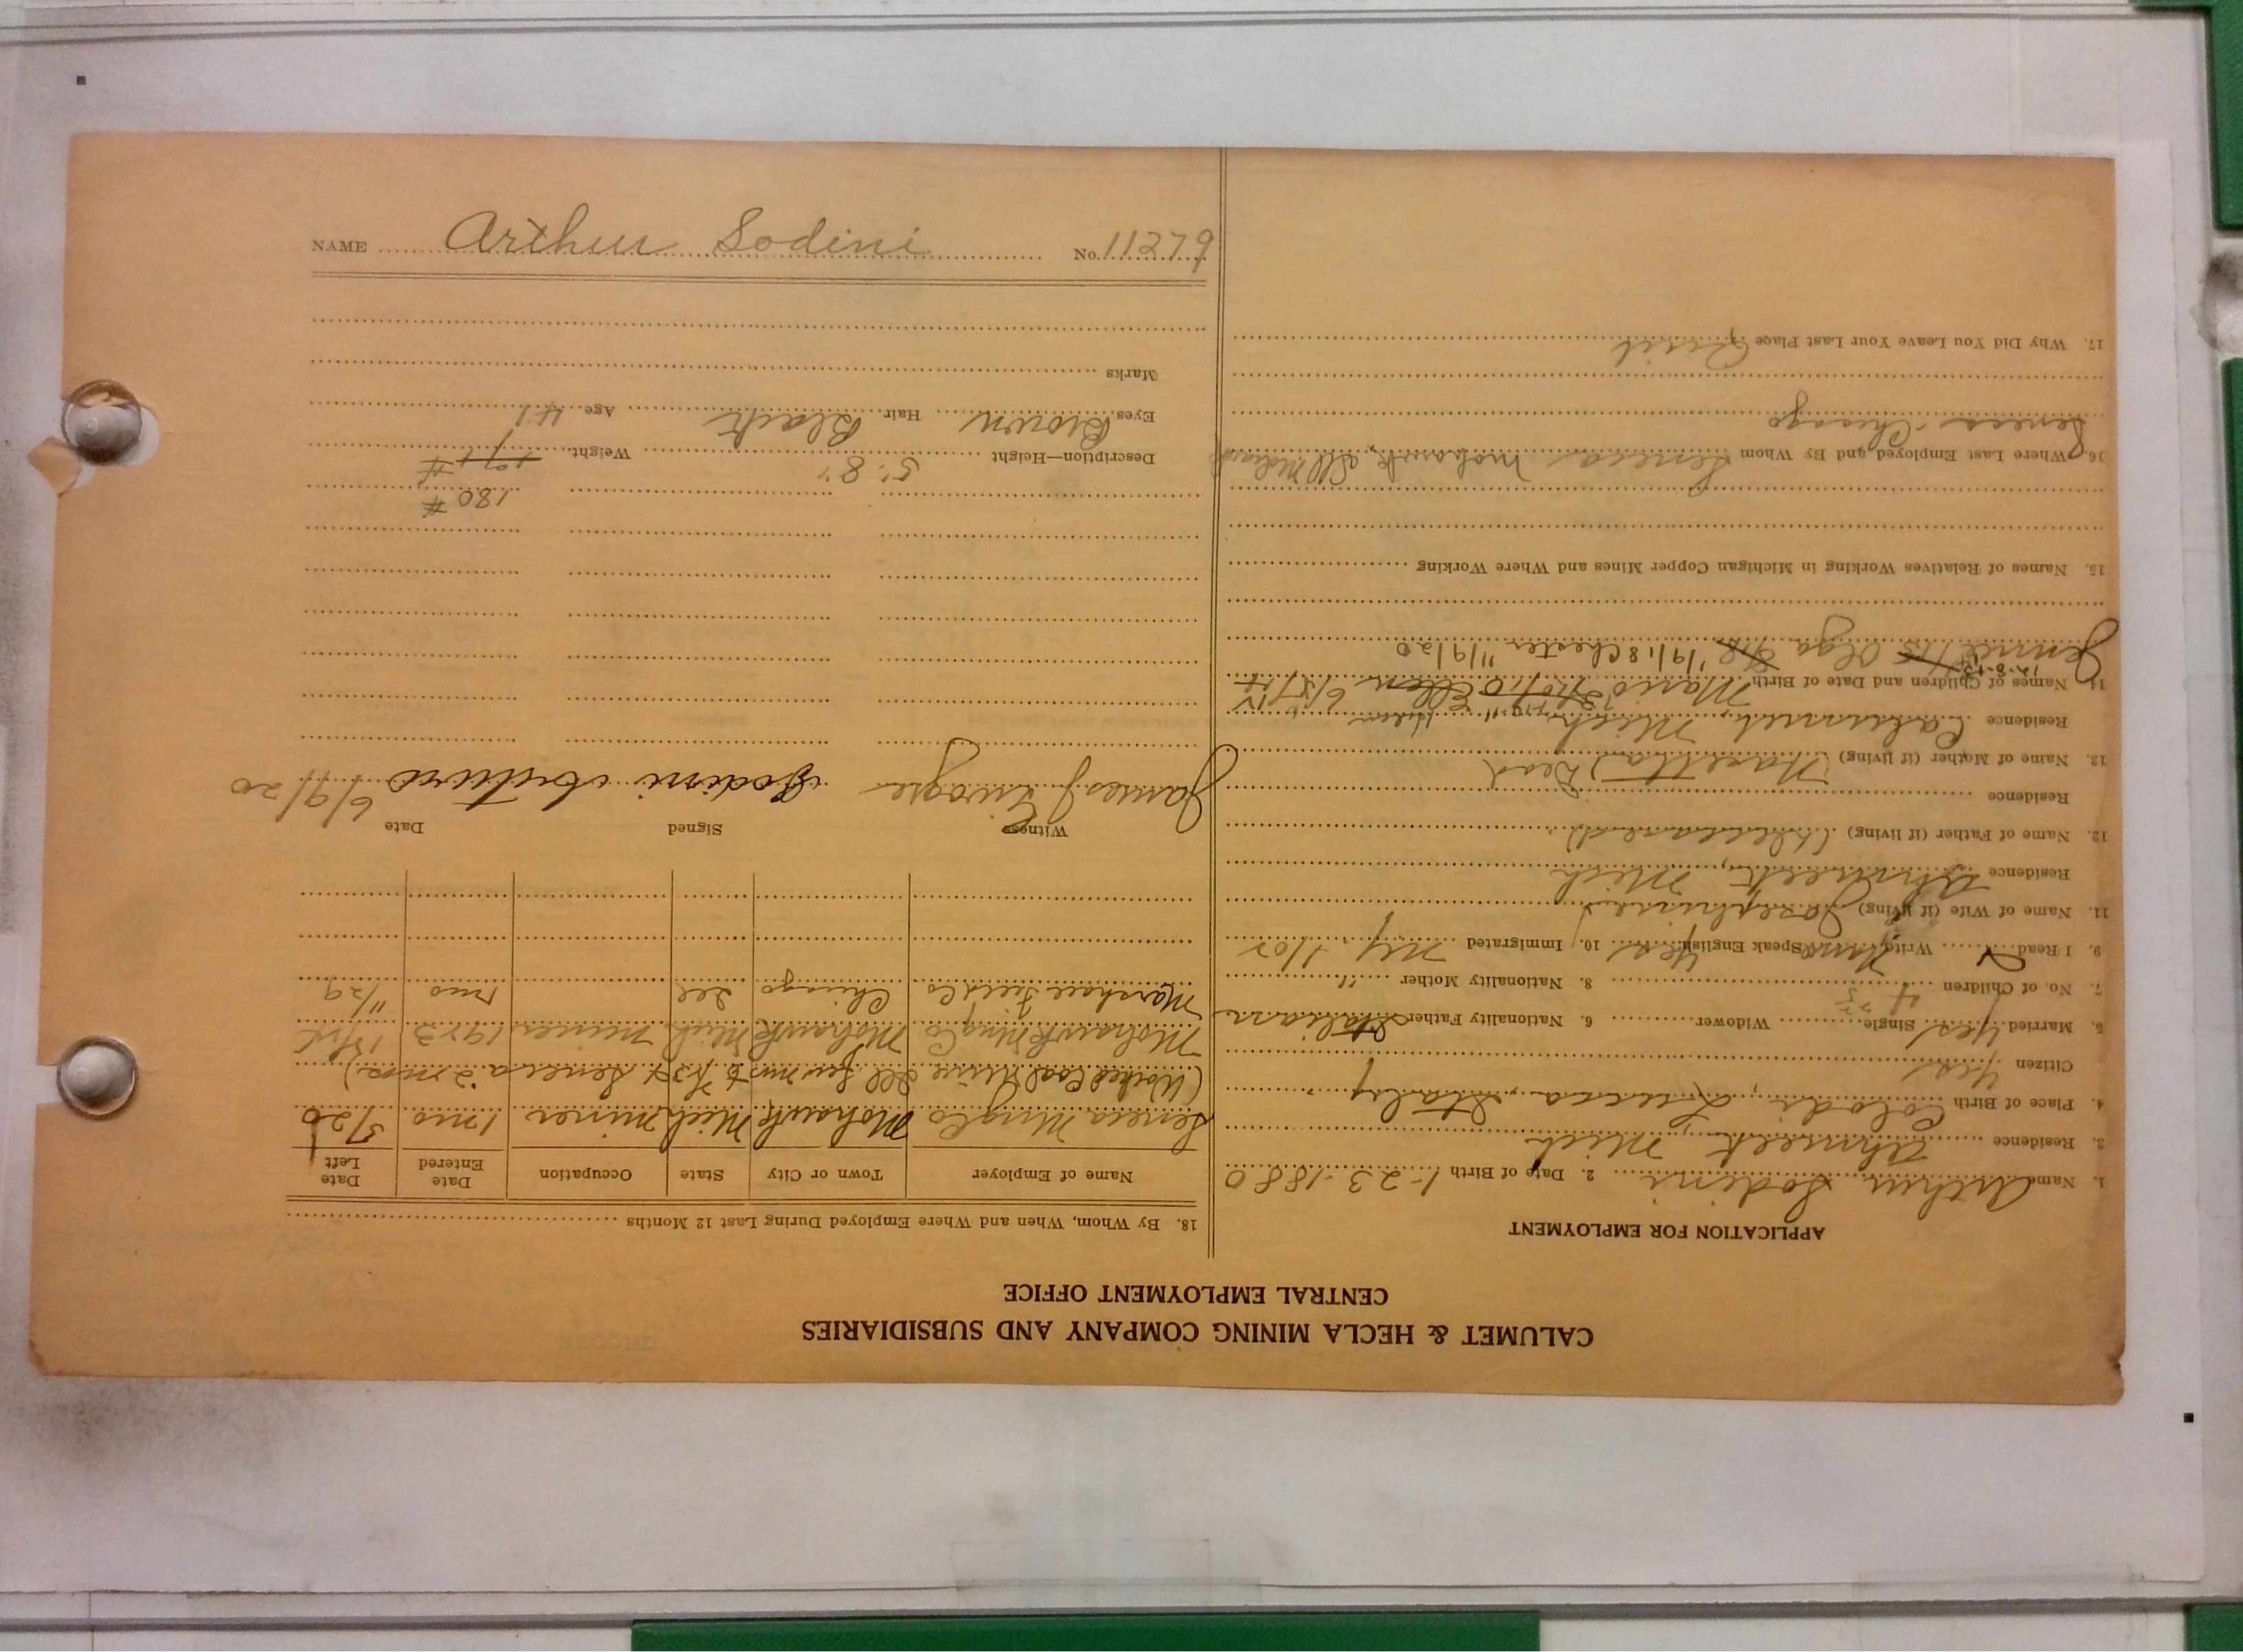 NAME Arthur Sodini No. 11279
CALUMET & HECLA MINING COMPANY AND SUBSIDIARIES
CENTRAL EMPLOYMENT OFFICE
APPLICATION FOR EMPLOYMENT
1. Name Arthur Sodini 2. Date of Birth 1-23-1880
3. Residence Ahmeek Mich
4. Place of Birth Colodi, Lucca, Italy
Citizen Yes
5. Married Yes Single Widower 6. Nationality Father Italian
7. No. of Children 4 8. Nationality Mother "
9. I Read Write Speak English Yes 10. Immigrated N.Y.
11. Name of Wife (if living) Josephine
Residence Ahmeek, Mich
12. Name of Father (if living) (deceased)
Residence
13. Name of Mother (if living) Dead
Residence Calumet, Mich
14. Names of Children and Date of Birth Mario Ellen
Jennie Olga 1/9/18 Chester 11/9/20
15. Names of Relatives Working in Michigan Copper Mines and Where Working
16. Where Last Employed and By Whom Seneca Mohawk
Seneca - Chicago
17. Why Did You Leave Your Last Place Quit
18. By Whom, When and Where Employed During Last 12 Months
Name of Employer Town or City State Occupation Date Entered Date Left
Seneca Mng Co Mohawk Mich miner 1 mo 5/20
(Worked Coal Mine Ill few mos Seneca 2 mos)
Mohawk Mng Co Mohawk Mich miner 1922
Marshall Field Co Chicago Ill mo 11/29
Witness Signed Date
James J Sodini Arturo 6/9/20
180 #
Description—Height 5' 8" Weight 191 #
Eyes Brown Hair Black Age 41
Marks